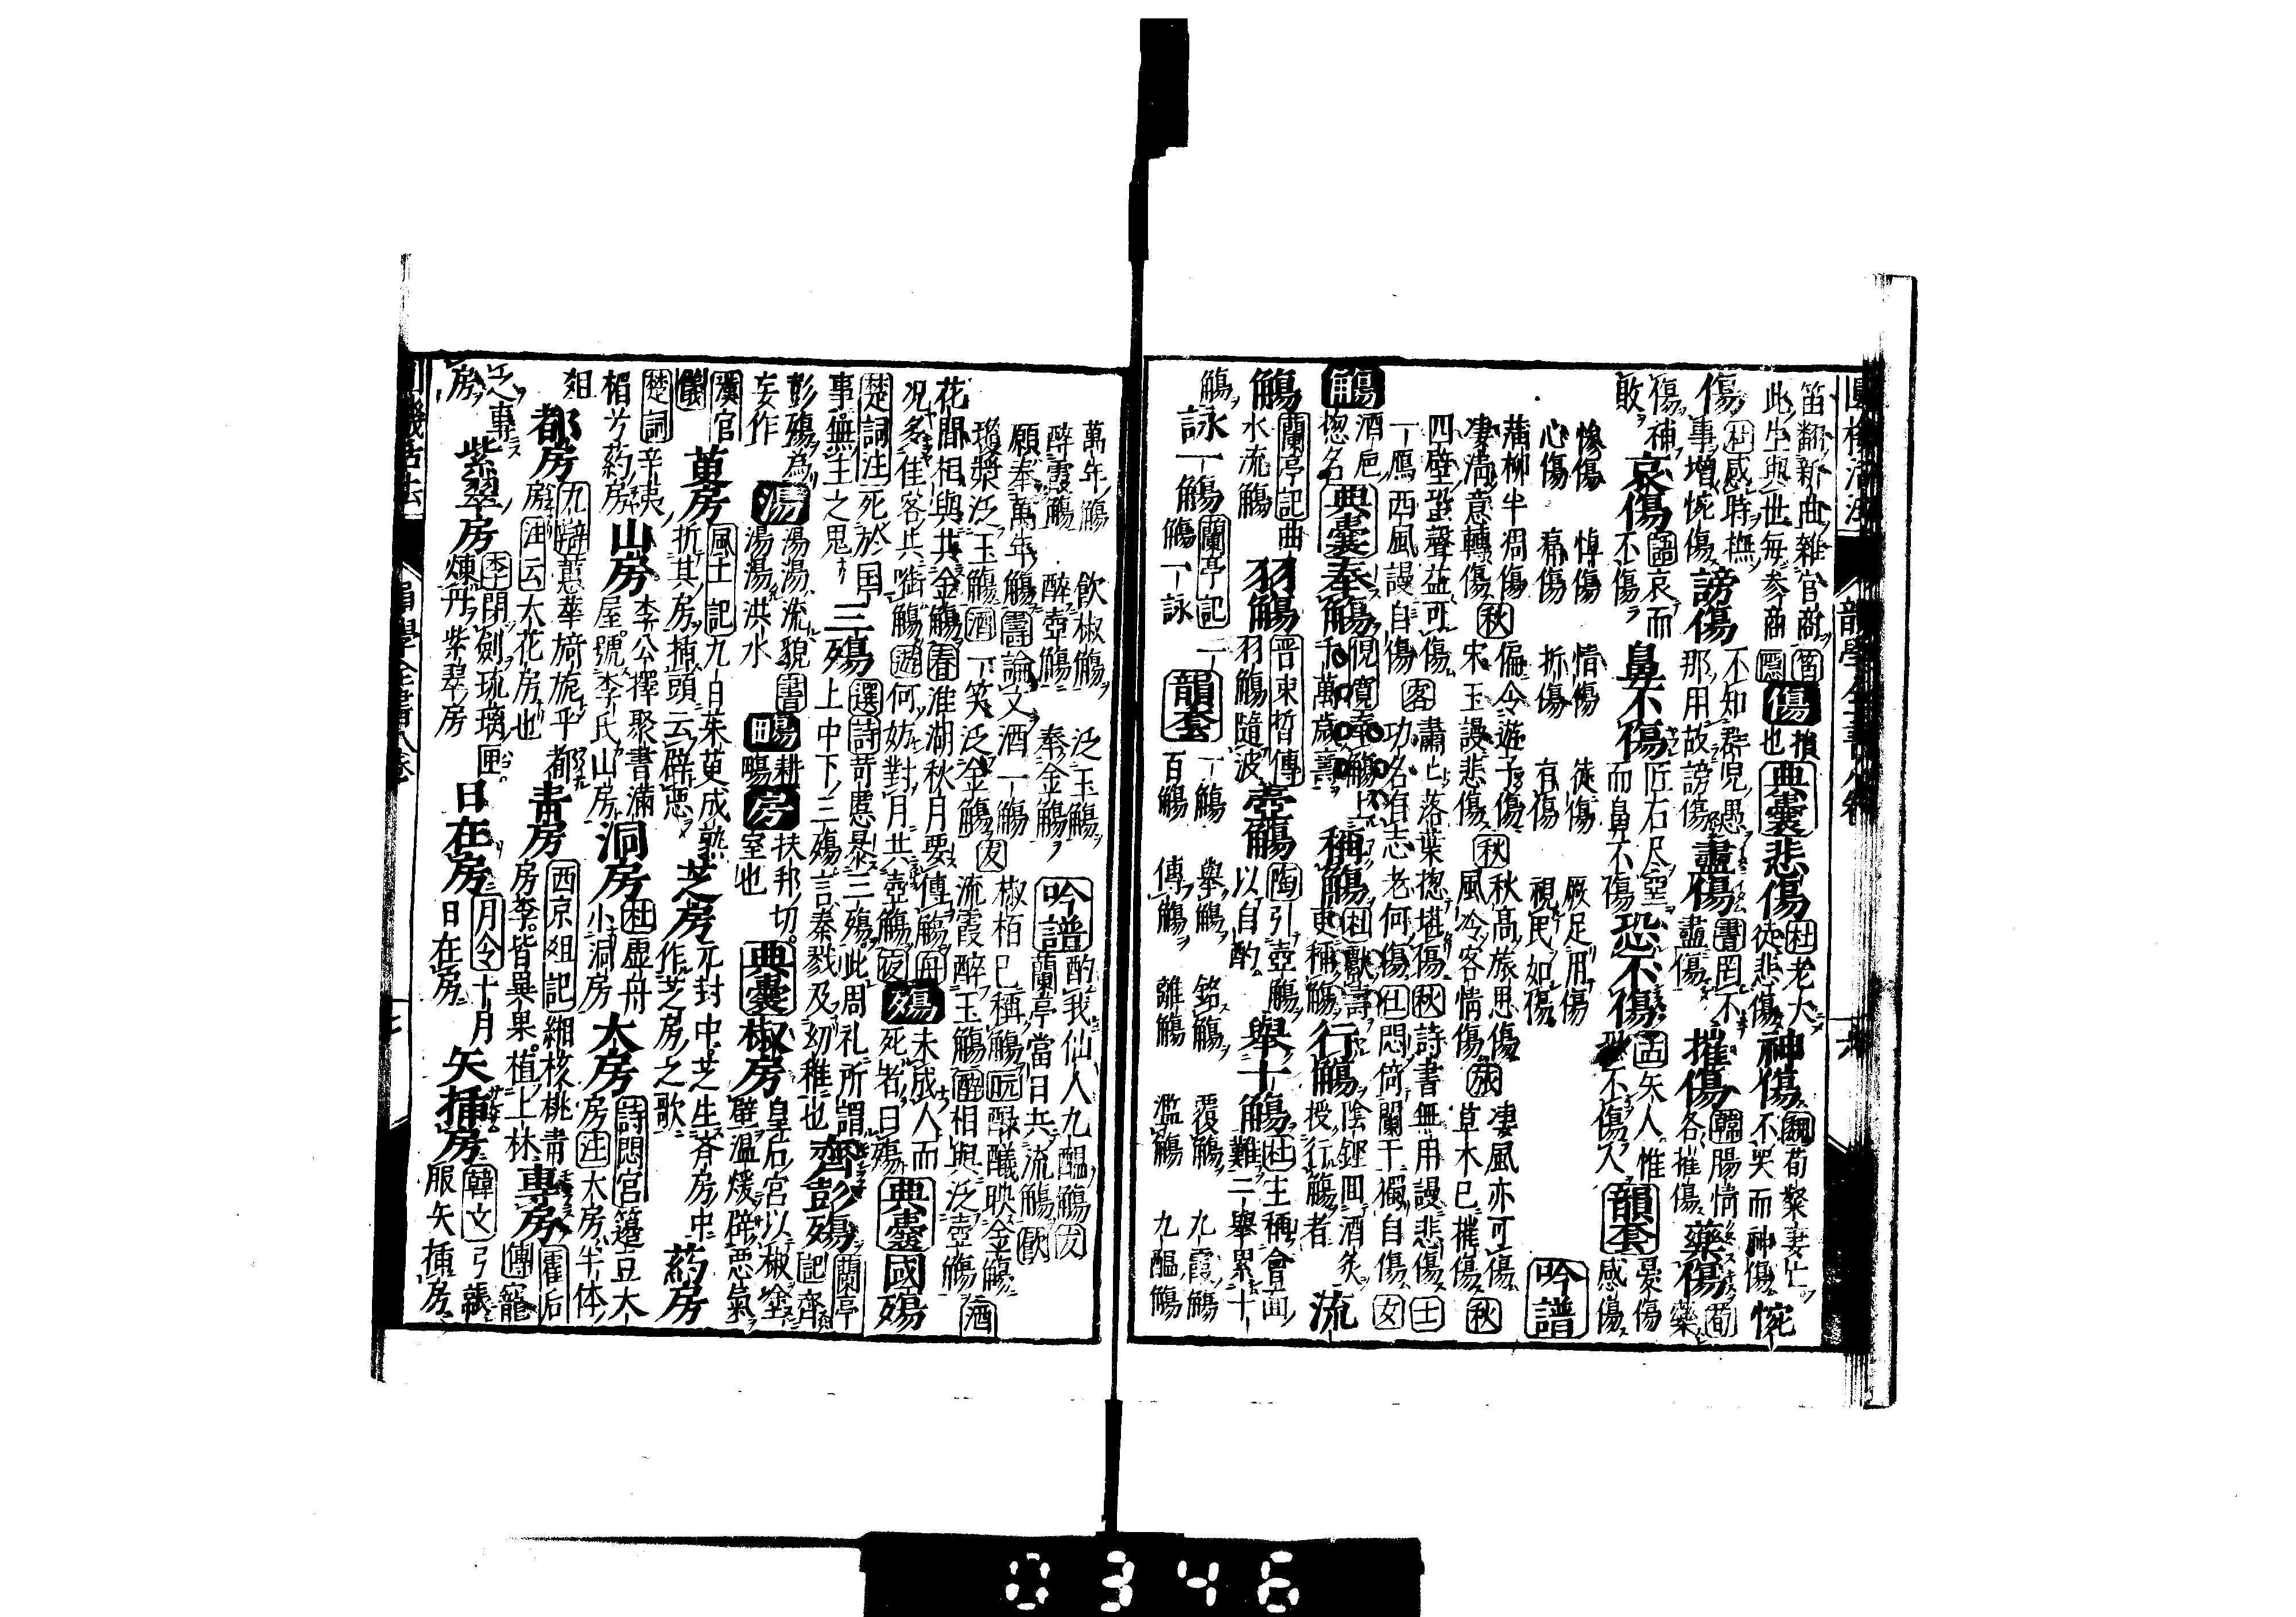 圓機活法 韻學全書八卷 六
笛翻新曲雜宮商
此生與世每參商 傷 損也 典囊 悲傷 杜老大徒悲傷 神傷 荀粲妻亡不哭而神傷 惋
傷 杜感時撫事增惋傷 謗傷 不知群兒愚那用故謗傷 盡傷 書罔不盡傷 摧傷 韓腸情各摧傷 藥傷 荀藥
傷補敗 哀傷 語哀而不傷 鼻不傷 匠石尺堊而鼻不傷 恐不傷 孟矢人惟恐不傷人 韻套 憂傷 感傷
慘傷 悼傷 惜傷 徒傷 厥足用傷
心傷 痛傷 折傷 有傷 視民如傷 吟譜
蒲柳半凋傷 秋 偏令遊子傷 秋 秋高旅思傷 旅 凄風亦可傷
凄涼意轉傷 宋玉謾悲傷 風冷客情傷 草木已摧傷 秋
四壁蛩聲益可傷 客 肅上落葉揔堪傷 秋 詩書無用謾悲傷 士
一鴈西風謾自傷 功名有志老何傷 仕 悶倚闌干獨自傷 女
觴 酒卮揔名 典囊 奉觴 倪寬奉觴上千萬歲壽 稱觴 杜獻壽更稱觴 行觴 陰鏗因酒炙授行觴者 流
觴 蘭亭記曲水流觴 羽觴 晉束晳傳羽觴隨波 壺觴 陶引壺觴以自酌 舉十觴 杜主稱會面難一舉累十
觴 詠一觴 蘭亭記一觴一詠 韻套 一觴 舉觴 銘觴 覆觴 九霞觴
百觴 傳觴 離觴 濫觴 九醞觴
萬年觴 飲椒觴 泛玉觴 吟譜 酌我仙人九醞觴 友
醉霞觴 醉壺觴 奉金觴 蘭亭當日共流觴 歡
願奉萬年觴 壽 論文酒一觴 友 椒栢已稱觴 元 醁醱映金觴 酒
瓊漿泛玉觴 酒 一笑泛金觴 流霞醉玉觴 醉 相與泛壺觴
花間相與共金觴 春 淮湖秋月要傳觴 舟 殤 未成人而死者曰殤 典囊 國殤
况多佳客共啣觴 遊 何妨對月共壺觴 夜
楚詞注死於国事無主之鬼 三殤 選詩苛慝暴三殤此周礼所謂上中下三殤言秦戮及幼稚也 齊彭殤 蘭亭記齊
彭殤爲妄作 湯 湯湯流貌 書湯湯洪水 畼 耕畼 房 扶邦切室也 典囊 椒房 皇后宮以椒塗壁温煖辟惡氣
漢官儀 萸房 風土記九日茱萸成熟折其房插頭云辟惡 芝房 元封中芝生斉房中作芝房之歌 葯房
楚詞辛夷楣兮葯房 山房 李公擇聚書滿屋號李氏山房 洞房 杜虚舟小洞房 大房 詩閟宮籩豆大房注大房半体
俎 都房 九辯蕙華旖旎乎都房注云大花房也 青房 西京雜記緗核桃青房李皆異果植上林 專房 霍后傳寵
之事 紫翠房 李閉劍琉璃匣煉丹紫翠房 日在房 月令十月日在房 矢插房 韓文弓張服矢插房
圓機活法 韻學全書八卷 七
0346